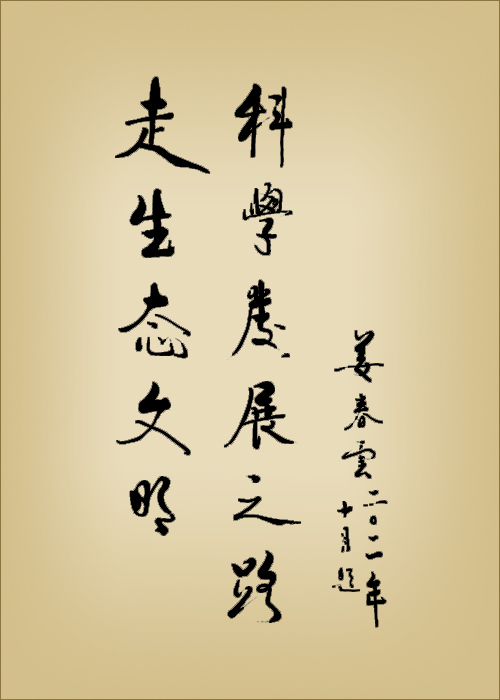 走生态文明
科學發展之路
姜春雲
二〇一一年
十月題